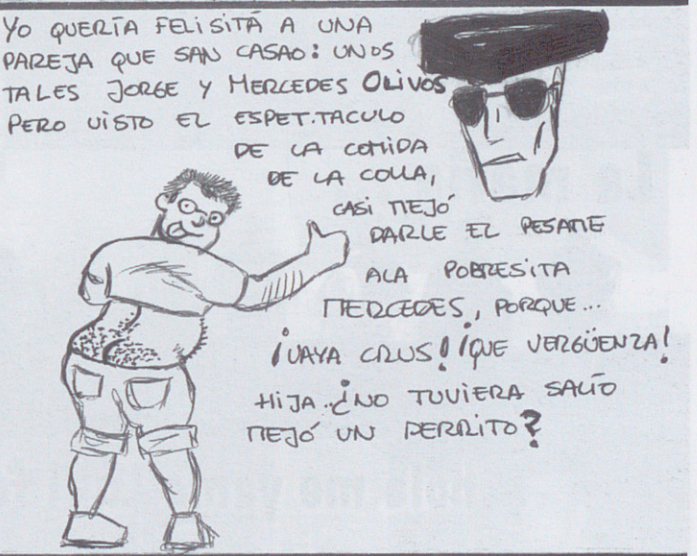 YO QUERÍA FELISITÁ A UNA
PAREJA QUE SAN CASAO: UNOS
TALES JORGE Y MERCEDES OLIVOS
PERO VISTO EL ESPET.TACULO
DE LA COMIDA
DE LA COLLA,
CASI MEJÓ
DARLE EL PESAME
ALA POBRESITA
MERCEDES, PORQUE...
¡VAYA CRUS! ¡QUE VERGÜENZA!
HIJA ¿NO TUVIERA SALÍO
MEJÓ UN PERRITO?